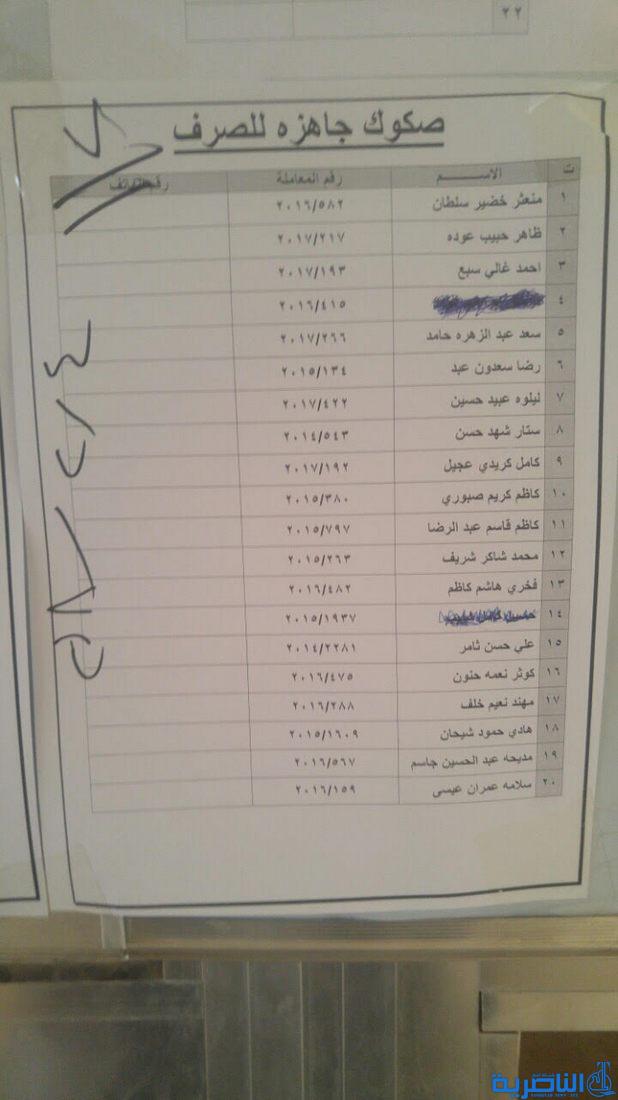 ٢٢
صكوك جاهزه للصرف
ت الاســـــم رقم المعاملة رقم الهاتف
١ منعثر خضير سلطان ٢٠١٦/٥٨٢
٢ ظاهر حبيب عوده ٢٠١٧/٢١٧
٣ احمد غالي سبع ٢٠١٧/١٩٣
٤ ٢٠١٦/٤١٥
٥ سعد عبد الزهره حامد ٢٠١٧/٢٦٦
٦ رضا سعدون عبد ٢٠١٥/١٣٤
٧ ليلوه عبيد حسين ٢٠١٧/٤٢٢
٨ ستار شهد حسن ٢٠١٤/٥٤٣
٩ كامل كريدي عجيل ٢٠١٧/١٩٢
١٠ كاظم كريم صبوري ٢٠١٥/٣٨٠
١١ كاظم قاسم عبد الرضا ٢٠١٥/٧٩٧
١٢ محمد شاكر شريف ٢٠١٥/٢٦٣
١٣ فخري هاشم كاظم ٢٠١٦/٤٨٢
١٤ ٢٠١٥/١٩٣٧
١٥ علي حسن ثامر ٢٠١٤/٢٢٨١
١٦ كوثر نعمه حنون ٢٠١٦/٤٧٥
١٧ مهند نعيم خلف ٢٠١٦/٢٨٨
١٨ هادي حمود شيحان ٢٠١٥/١٦٠٩
١٩ مديحه عبد الحسين جاسم ٢٠١٦/٥٦٧
٢٠ سلامه عمران عيسى ٢٠١٦/١٥٩
الناصرية